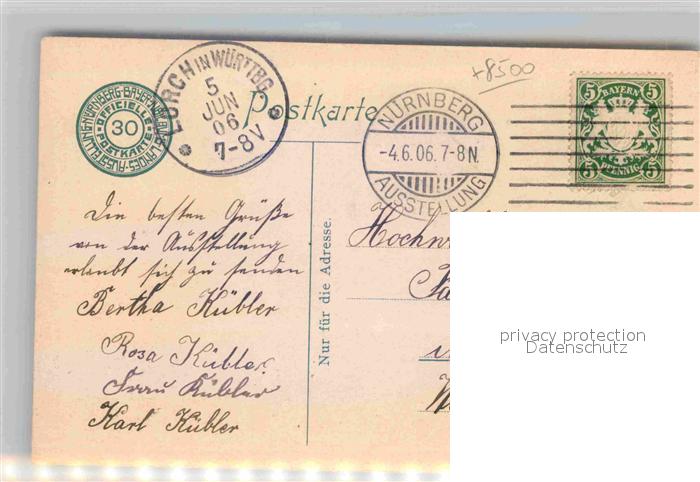 +8500
LORCH IN WÜRTTBG.
5
JUN
06
7-8V
BAYER. JUB. LANDES-AUSSTELLUNG NÜRNBERG
OFFICIELLE POSTKARTE
30
Postkarte
NÜRNBERG
-4.6.06.7-8N.
AUSSTELLUNG
5 BAYERN 5
5 PFENNIG 5
Die besten Grüße
von der Ausstellung
erlaubt sich zu senden
Bertha Kübler
Rosa Kübler
Frau Kübler
Karl Kübler
Nur für die Adresse.
privacy protection
Datenschutz